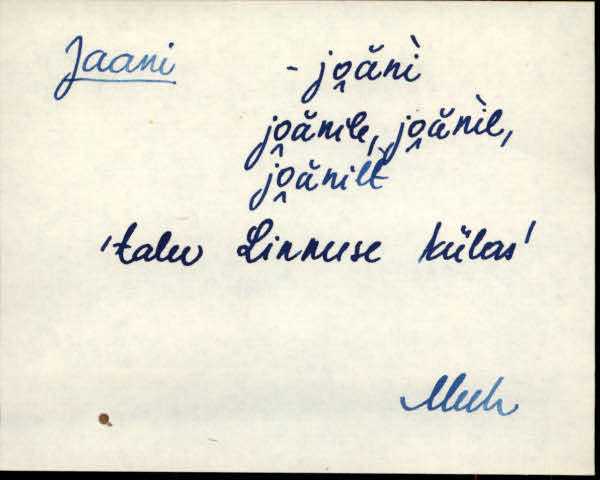 Jaani - jo̭ănì
jo̭ănile, jo̭ănìl,
jo̭ănilt
'talu Linnuse külas'
Muh